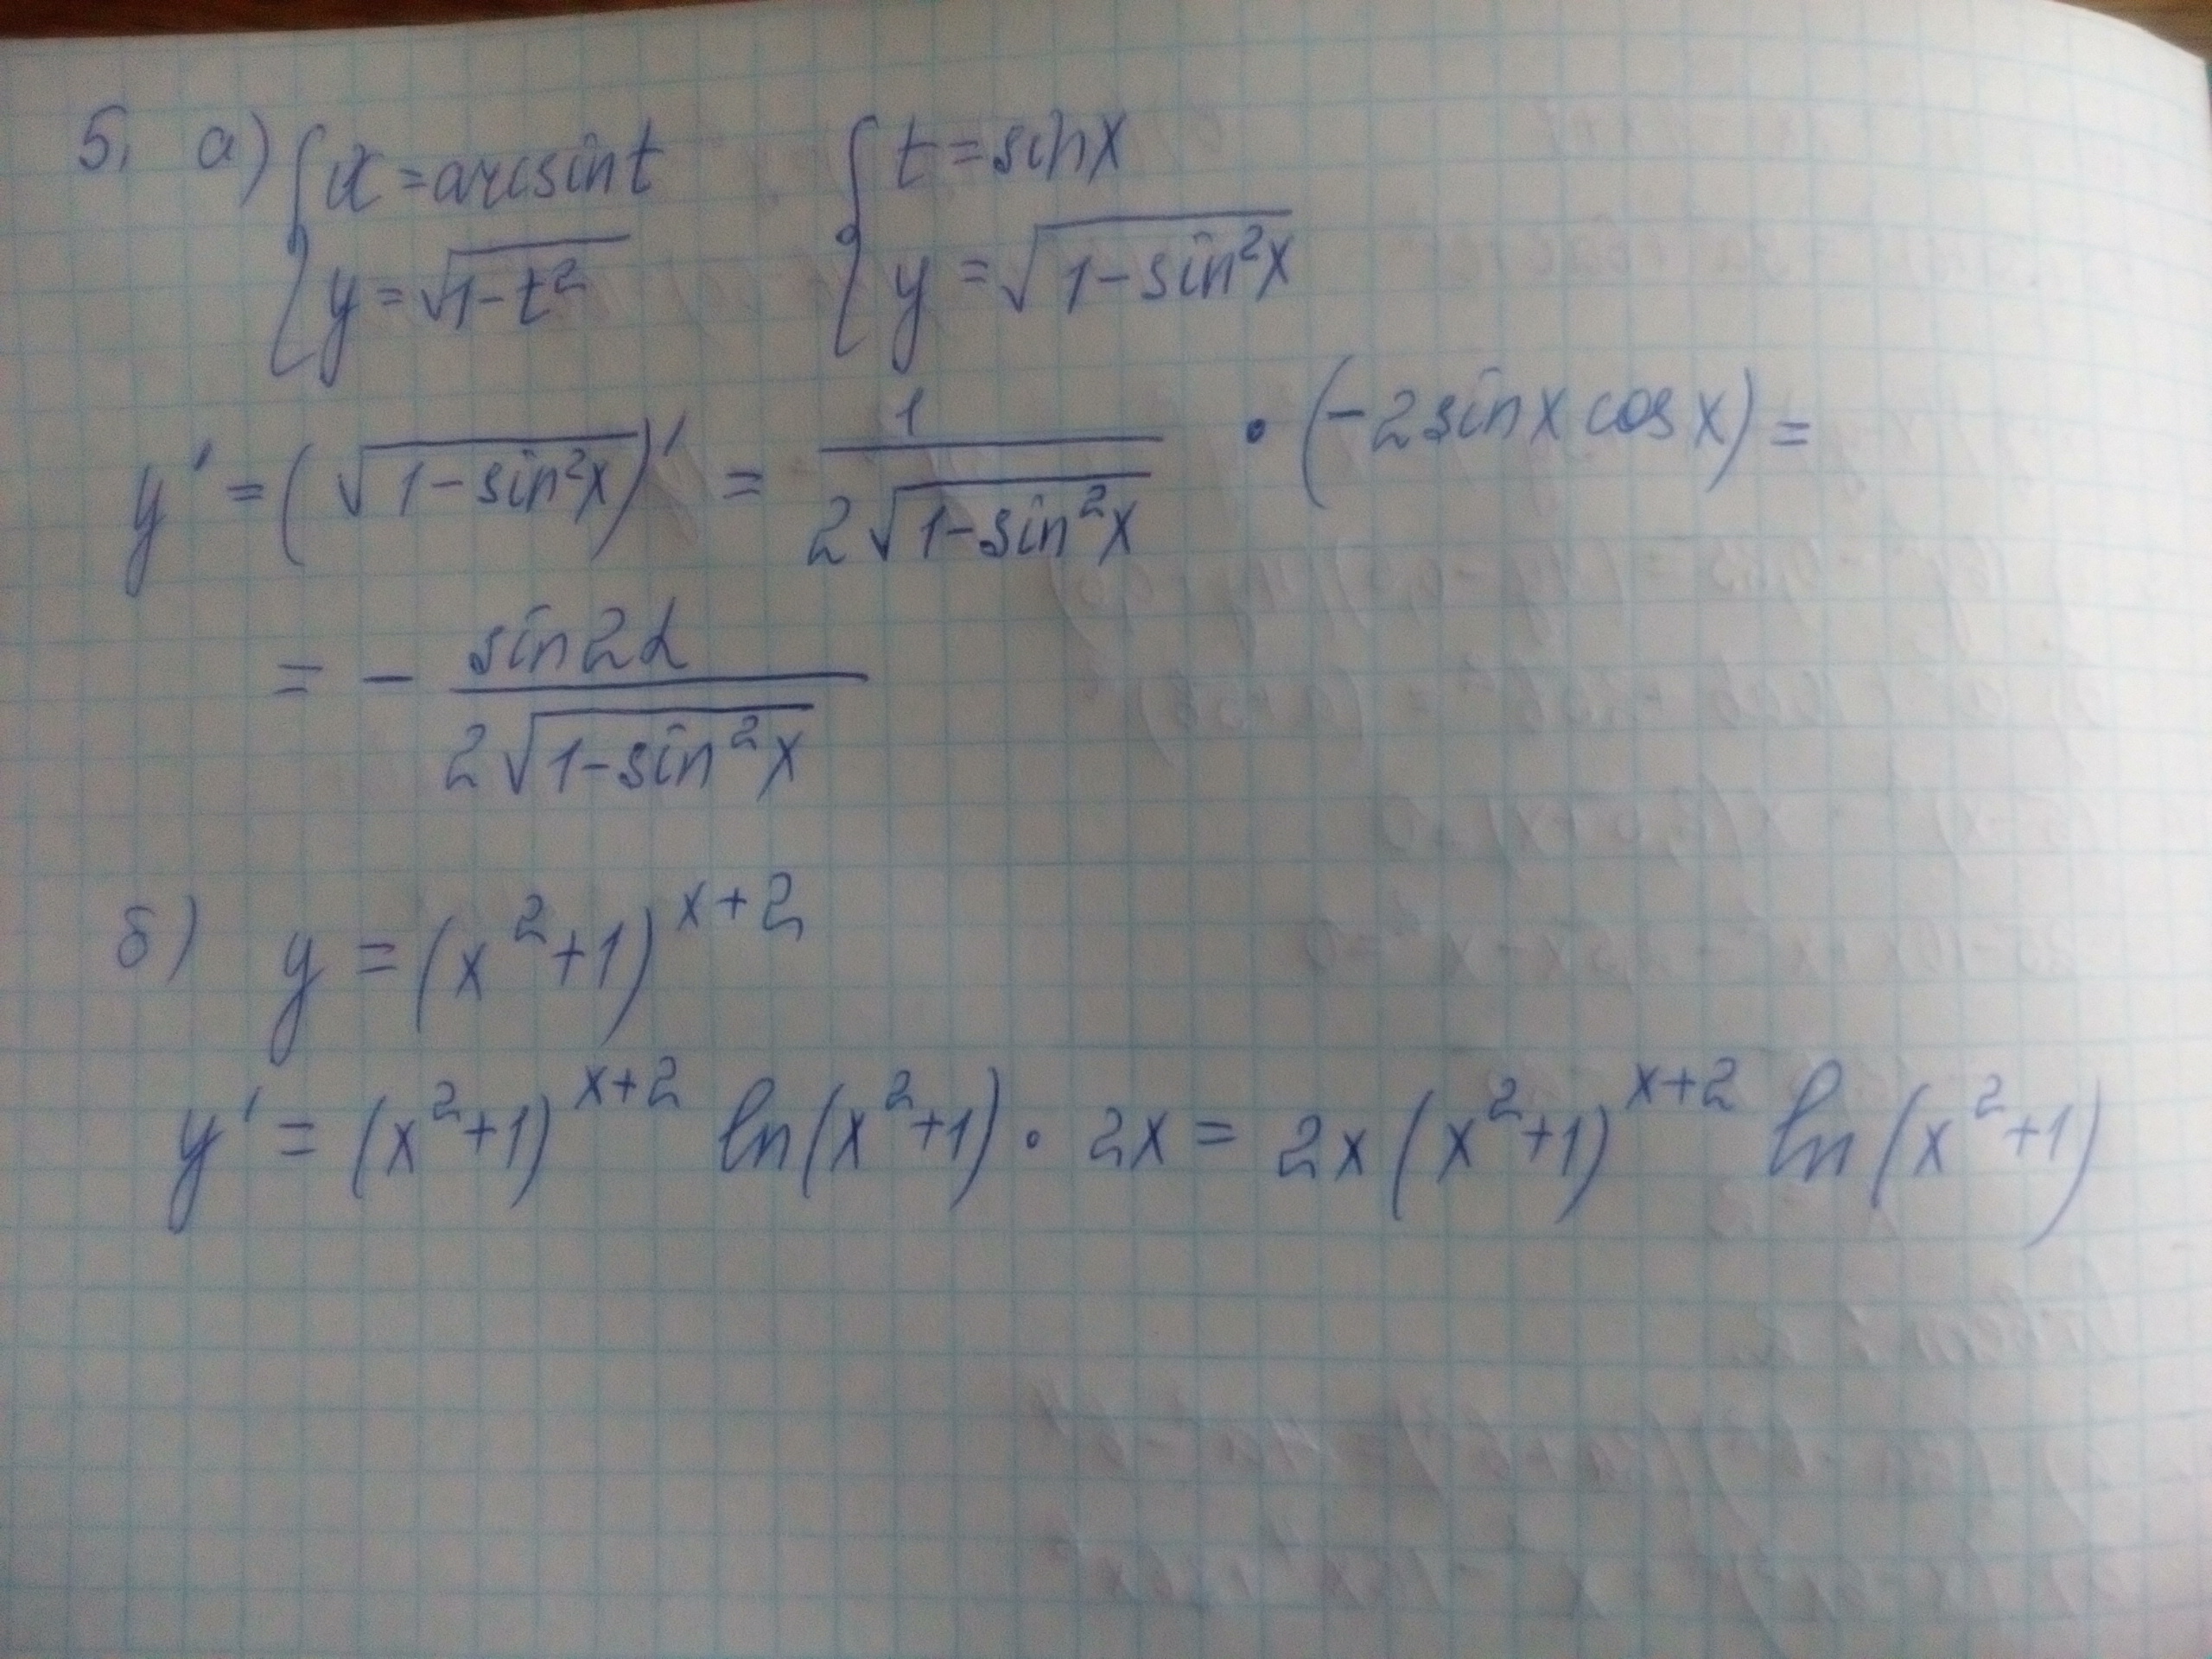 5. а) { x = arcsin t { t = sin x
y = √(1-t²) y = √(1-sin²x)
y' = (√(1-sin²x))' = 1/(2√(1-sin²x)) • (-2 sin x cos x) =
= - sin2α/(2√(1-sin²x))
б) y = (x²+1)^(x+2)
y' = (x²+1)^(x+2) ln(x²+1) • 2x = 2x(x²+1)^(x+2) ln(x²+1)